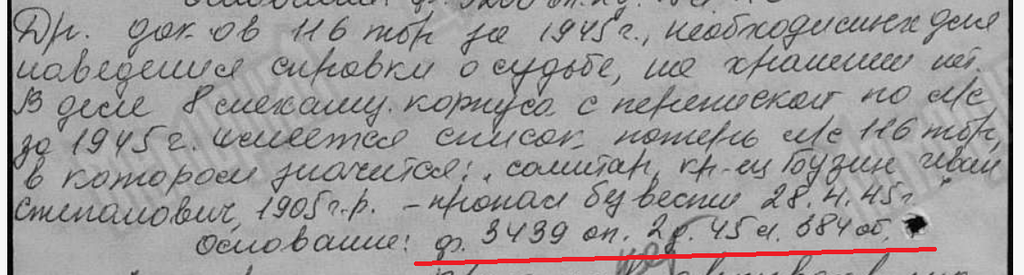 Др. док-ов 116 тбр за 1945 г., необходимых для
наведения справки о судьбе, на хранении нет.
В деле 8 механиз. корпуса с перепиской по л/с
за 1945 г. имеется список потерь л/с 116 тбр,
в котором значится: „санитар, кр-ец Бузин Иван
Степанович, 1905 г.р. – пропал без вести 28.4.45 г."
Основание: ф. 3439 оп. 2 д. 45 л. 384 об.